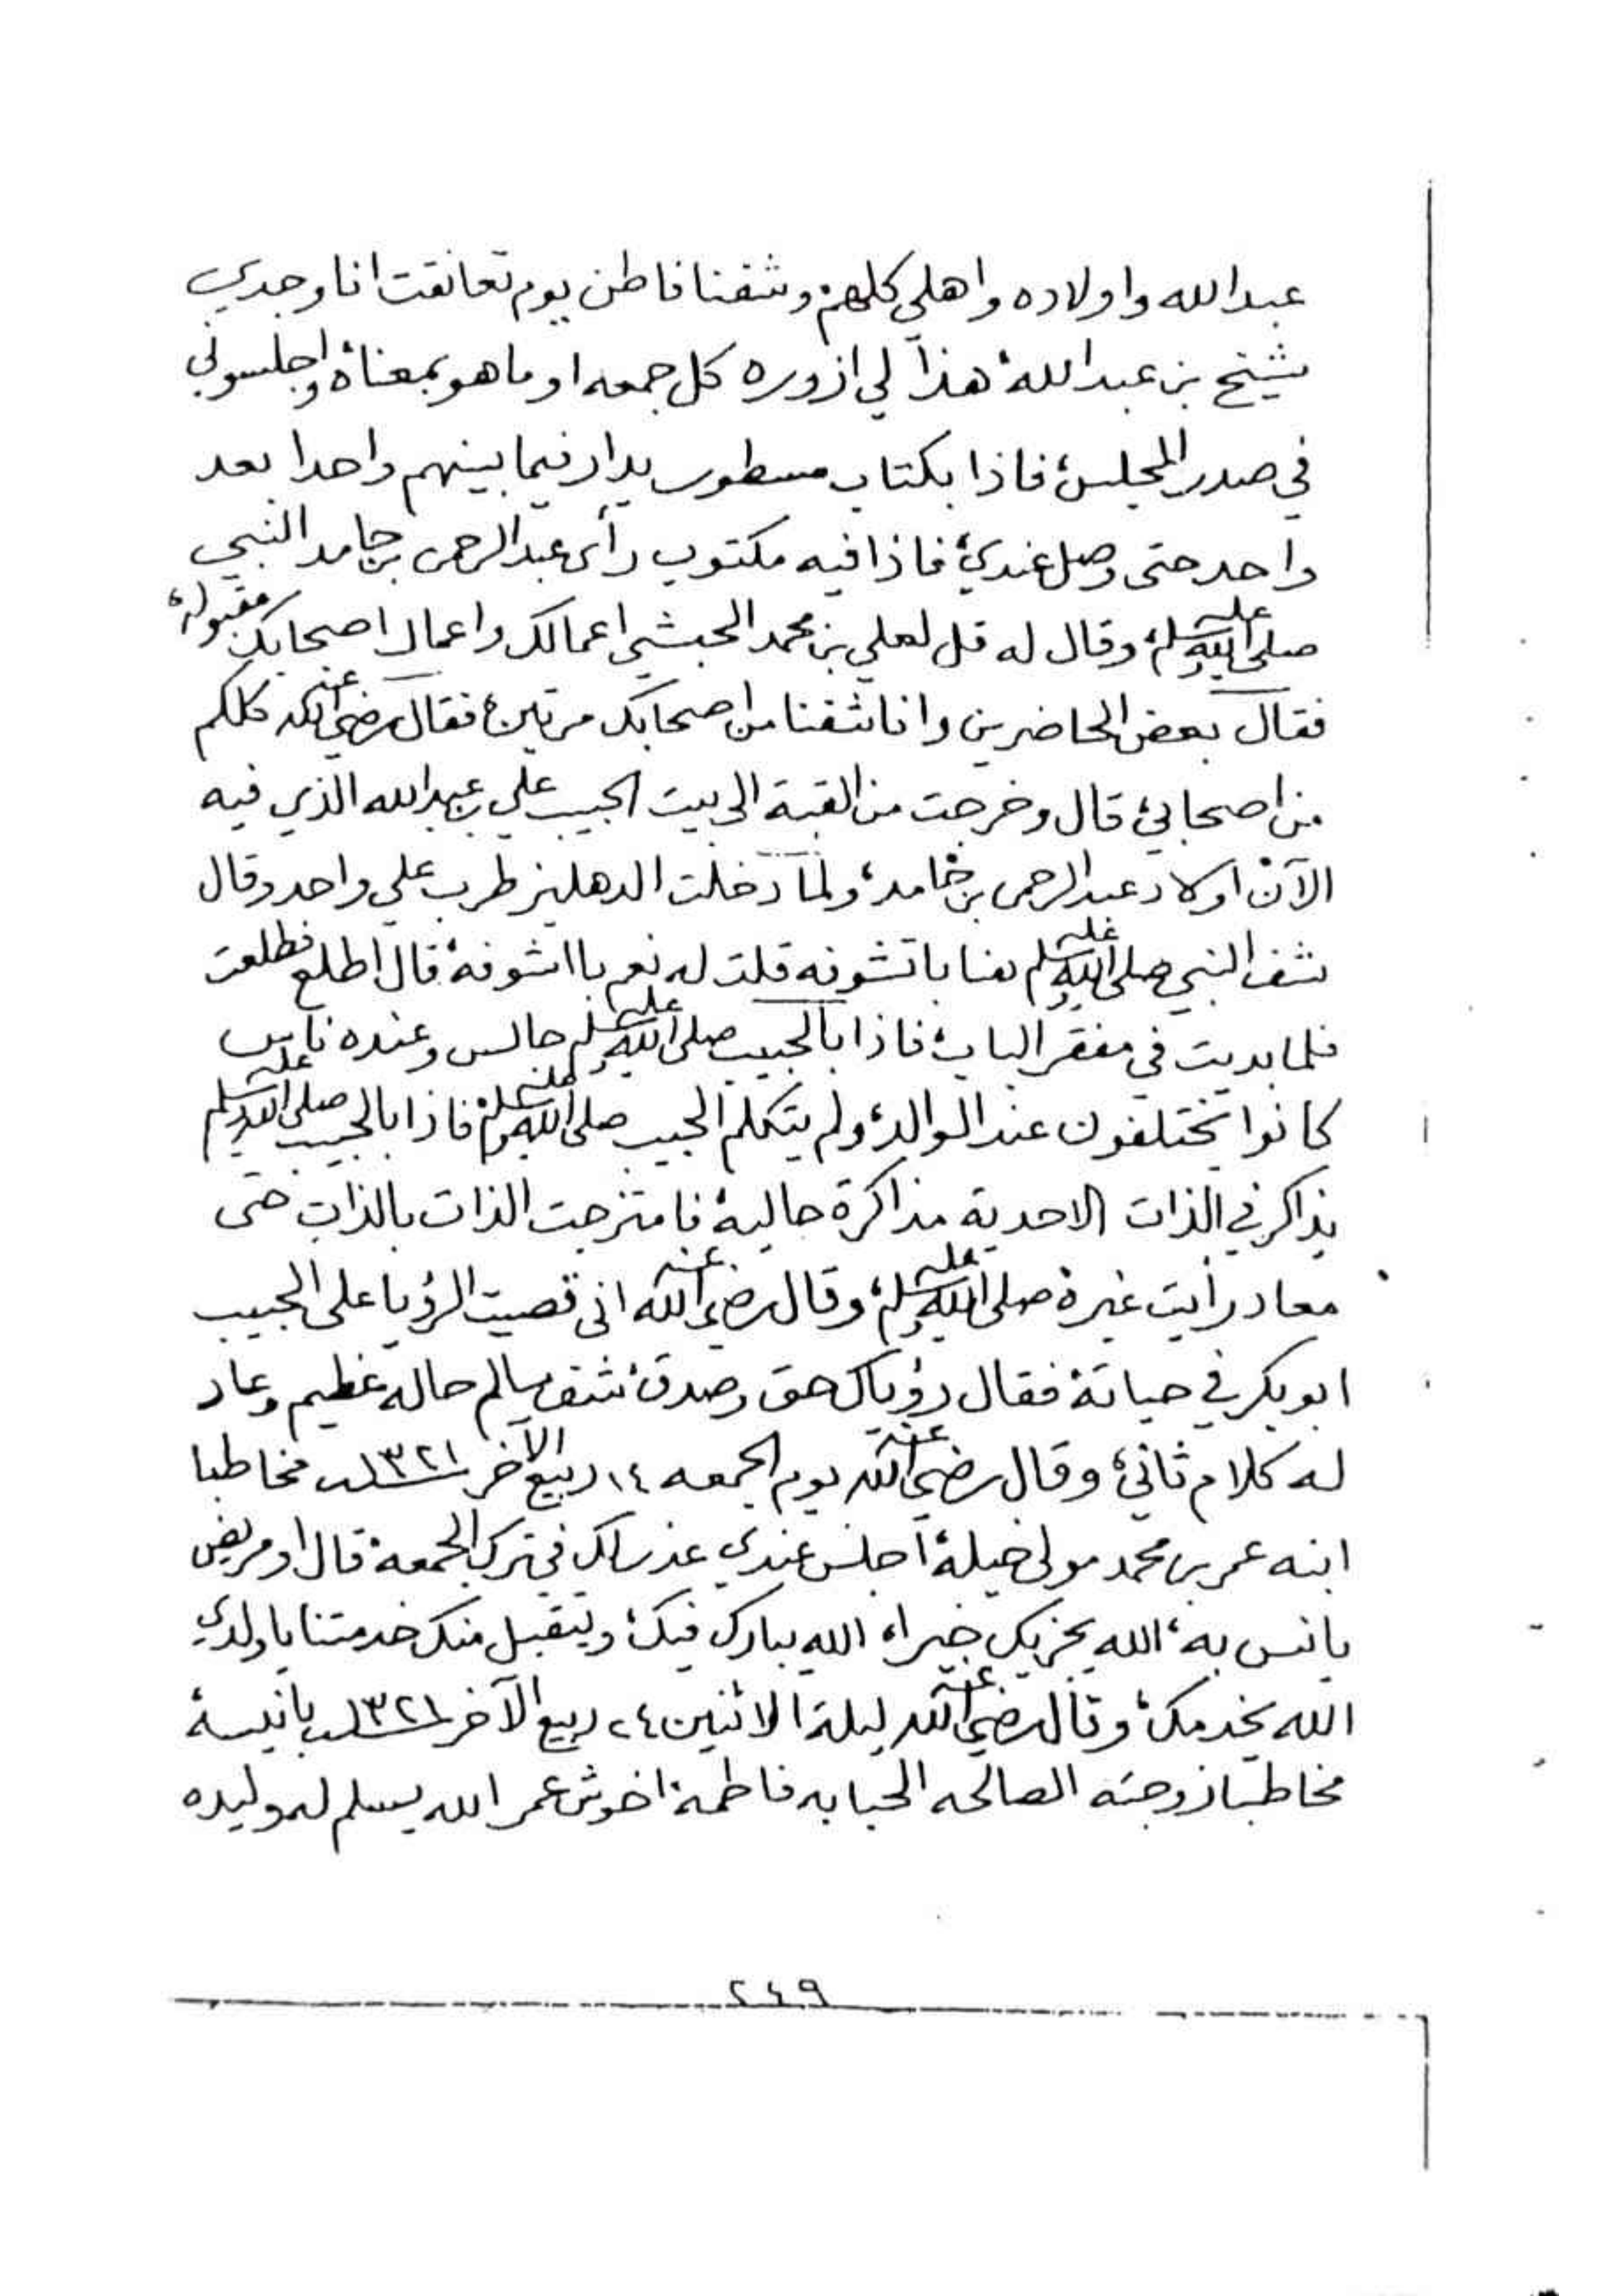 عبدالله واولاده واهلي كلهم، وشفنا فاطن يوم تعانقت انا وجدي
شيخ بن عبدالله، هذا لي ازوره كل جمعه او ما هو بمعناه، واجلسوني
في صدر المجلس، فاذا بكتاب مسطور يدار فيما بينهم واحدا بعد
واحد حتى وصل عندي، فاذا فيه مكتوب رأى عبدالرحمن بن حامد النبي
صلى الله عليه وسلم، وقال له قل لعلي بن محمد الحبشي اعمالك واعمال اصحابك مقبولة،
فقال بعض الحاضرين وانا شفنا من اصحابك مرتين، فقال رضي الله عنه كلكم
من اصحابي، قال وخرجت من القبة الى بيت الحبيب علي بن عبدالله الذي فيه
الآن اولاد عبدالرحمن بن حامد، ولما دخلت الدهليز طرب علي واحد وقال
شف النبي صلى الله عليه وسلم هنا باتشوفه قلت له نعم بااشوفه، قال اطلع فطلعت
فلما بديت في مفقر الباب، فاذا بالحبيب صلى الله عليه وسلم جالس وعنده ناس
كانوا يختلفون عند الوالد، ولم يتكلم الحبيب صلى الله عليه وسلم، فاذا بالحبيب صلى الله عليه وسلم
يذاكر في الذات الاحدية مذاكرة حالية، فامتزجت الذات بالذات حتى
معاد رأيت غيره صلى الله عليه وسلم، وقال رضي الله عنه اني قصيت الرؤيا على الحبيب
ابوبكر في حياته، فقال رؤياك حق وصدق، شف سالم حاله عظيم وعاد
له كلام ثاني، وقال رضي الله عنه يوم الجمعه ١٤ ربيع الآخر ١٣٢١ مخاطبا
ابنه عمر بن محمد مولى خيلة، اجلس عندي عذر لك في ترك الجمعة، قال او مريض
يانس به، الله يجزيك خيرا، الله يبارك فيك، ويتقبل منك خدمتنا يا ولدي
الله يخدمك، وقال رضي الله عنه ليلة الاثنين ٢٤ ربيع الآخر ١٣٢١ بانيسة
مخاطبا زوجته الصالحه الحبابه فاطمة، اخوش عمر الله يسلم له وليده
٢٤٩